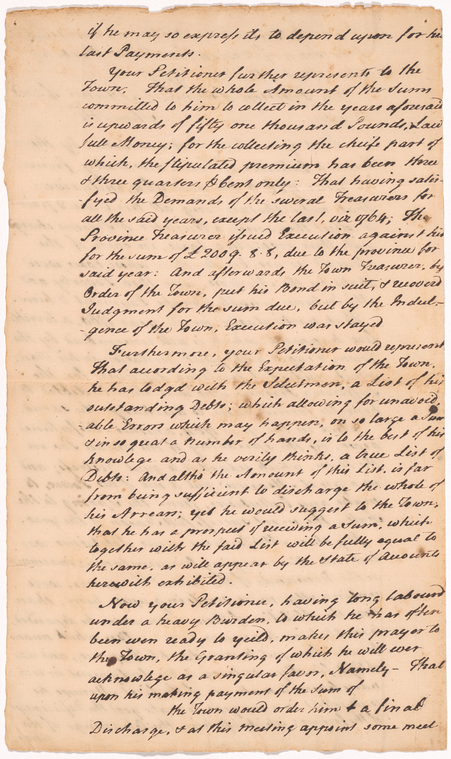 if he may so express it, to depend upon for his
last Payments.
Your Petitioner further represents to the
Town, That the whole Amount of the Sums
committed to him to collect in the years aforesaid
is upwards of fifty one thousand Pounds, Law
full Money; for the collecting the chiefs part of
which, the stipulated premium has been three
& three quarters ⅌ Cent only: That having satis-
fyed the Demands of the several Treasurers for
all the said years, except the last, viz 1764; The
Province Treasurer issued Execution against him
for the sum of £2009. 8. 8, due to the province for
said year: And afterwards the Town Treasurer, by
Order of the Town, put his Bond in suit, & recovd
Judgment for the sum due, but by the Indul-
-gence of the Town, Execution was stayed
Furthermore, your Petitioner would represent
That according to the Expectation of the Town,
he has lodgd with the Selectmen, a List of his
outstanding Debts; which allowing for unavoid
able Errors which may happen, on so large a Sum
& in so great a Number of hands, is to the best of his
knowlege and as he verily thinks, a true List of
Debts: And altho the Amount of this List, is far
from being sufficient to discharge the whole of
his Arrears; yet he would suggest to the Town,
that he has a prospect of receiving a Sum, which
together with the said List will be fully equal to
the same, as will appear by the State of Accounts
herewith exhibited.
Now your Petitioner, having long labourd
under a heavy Burden, to which he has often
been even ready to yeild, makes this prayer to
the Town, the Granting of which he will ever
acknowlege as a singular favor, Namely – That
upon his making payment of the Sum of
the Town would order him a final
Discharge, & at this meeting appoint some meet